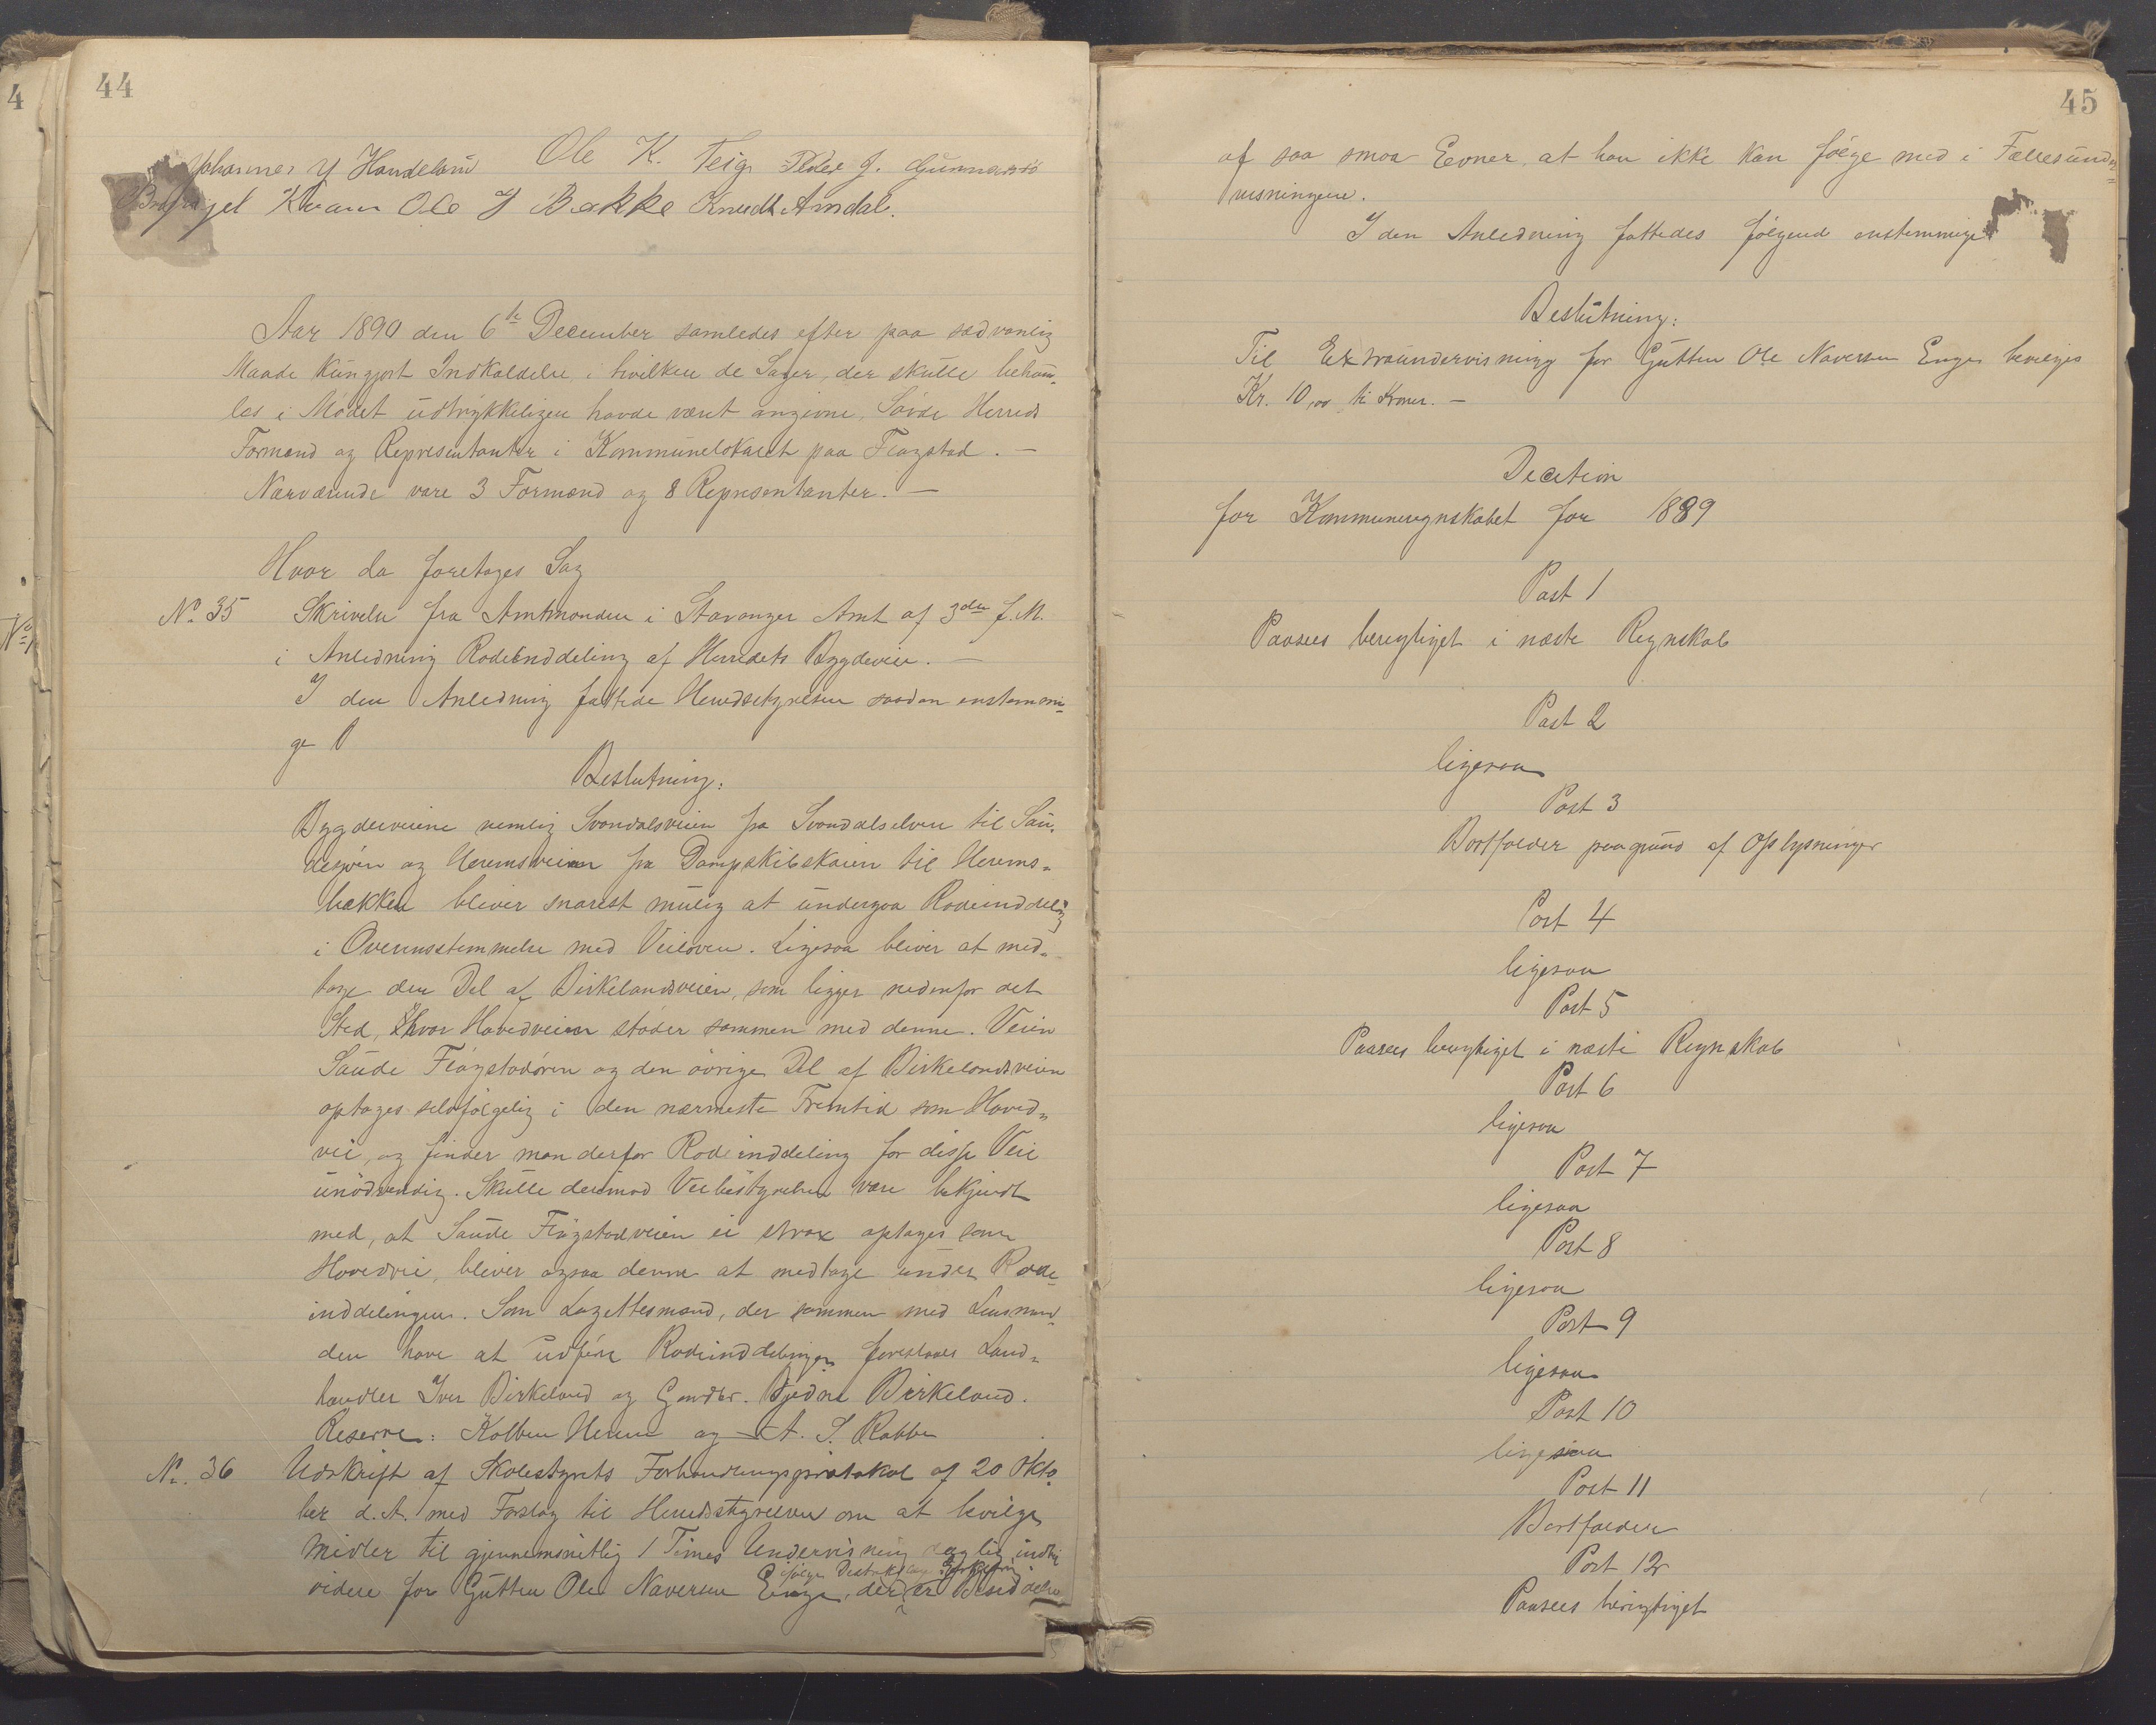 44
Johannes Y Handeland Ole K. Teig Peder J. Gunnarssø
Kvam Ole J Bakke Knudt Amdal.
Aar 1890 den 6te December samledes efter paa sædvanlig
Maade kungjort Indkaldelse i hvilken de Sager, der skulle behan¬
les i Mødet udtrykkeligen havde været angivne, Søvde Herreds
Formænd og Representanter i Kommunelokalet paa Fløgstad. —
Nærværende vare 3 Formænd og 8 Representanter. —
Hvor da foretages Sag
No. 35 Skrivelse fra Amtmanden i Stavanger Amt af 3die f. M.
i Anledning Rodeinddeling af Herredets Bygdeveie. —
I den Anledning fattede Herredsstyrelsen saadan enstemmi¬
ge
Beslutning:
Bygdeveiene nemlig Svandalsveien fra Svandalselven til Sau¬
desjøen og Heremsveien fra Dampskibskaien til Herems¬
bækken bliver snarest mulig at undergaa Rodeinddeling
i Overensstemmelse med Veiloven. Ligesaa bliver at med¬
tage den Del af Birkelandsveien, som ligger nedenfor det
Sted, hvor Hovedveien støder sammen med denne. Veien
Saude Fløgstadøren og den øvrige Del af Birkelandsveien
optages selvfølgelig i den nærmeste Fremtid som Hoved¬
vei, og finder man derfor Rodeinddeling for disse Veie
unødvendig. Skulle derimod Veibestyrelsen være bekjendt
med, at Saude Fløgstadveien ei strax optages som
Hovedvei, bliver ogsaa denne at medtage under Rode¬
inddelingen. Som Lagrettesmænd, der sammen med Lensman¬
den have at udføre Rodeinddelingen foreslaaes Land¬
handler Iver Birkeland og Gaardbr. Birkeland.
Reserve: Kolben Herem og A. S. Rabbe
No. 36 Udskrift af Skolestyrets Forhandlingsprotokol af 20 Okto¬
ber d. A. med Forslag til Herredsstyrelsen om at bevilge
Midler til gjennemsnitlig 1 Times Undervisning daglig indi
ifølge
videre for Gutten Ole Naversen Enge, der er Besiddelse
45
af saa smaa Evner, at han ikke kan følge med i Fællesunder¬
visningen.
I den Anledning fattedes følgende enstemmige
Beslutning:
Til Extraundervisning for Gutten Ole Naversen Enge bevilges
Kr. 10,00 ti Kroner. —
Decition
for Kommuneregnskabet for 1889
Post 1
Paasees berigtiget i næste Regnskab
Post 2
ligesaa
Post 3
Bortfalder paagrund af Oplysninger
Post 4
ligesaa
Post 5
Paasees berigtiget i næste Regnskab
Post 6
ligesaa
Post 7
ligesaa
Post 8
ligesaa
Post 9
ligesaa
Post 10
ligesaa
Post 11
Bortfalder
Post 12
Paasees berigtiget